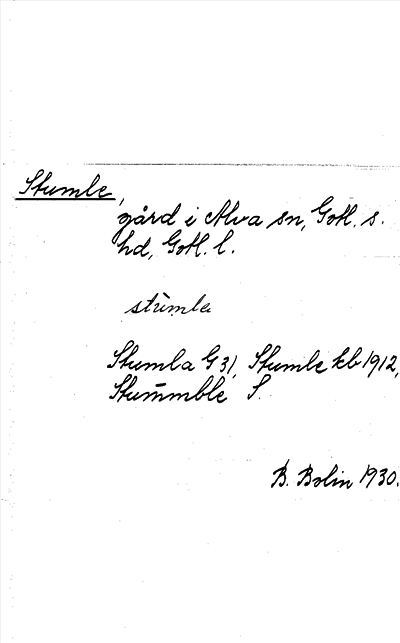 Stumle,
gård i Alva sn, Gotl. s.
hd, Gotl. l.
stùmla
Stumla G 31, Stumle kb 1912,
Stummble S
B. Bolin 1930.